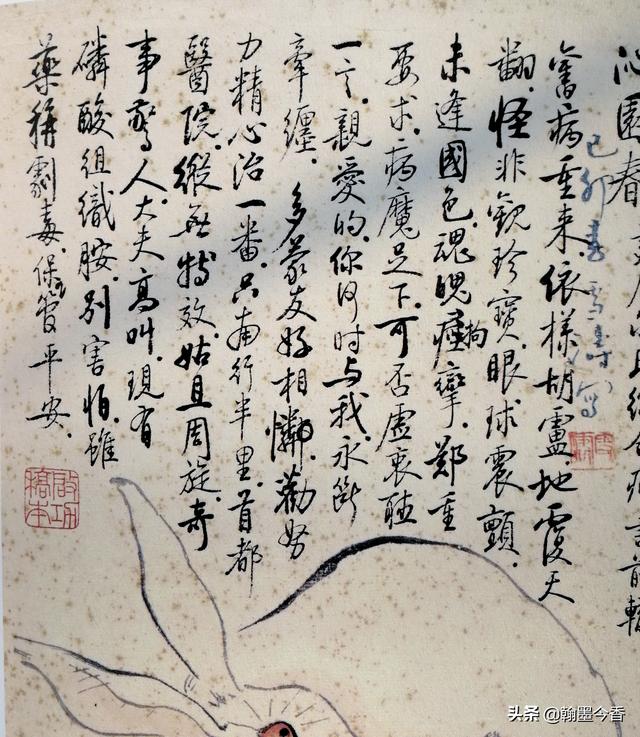 沁園春
己卯春雪濤寫
舊病重来依樣胡盧地覆天
翻怪非觀珍寶眼球震顫
未逢國色魂魄拘攣鄭重
要求病魔足下可否虛衷聽
一言親愛的你何時与我永斷
牽纏多蒙友好相憐勸努
力精心治一番只南行半里首都
醫院縱無特效姑且周旋奇
事驚人大夫高叫現有
磷酸組織胺別害怕雖
藥稱劇毒保管平安
啟功
头条 @翰墨今香